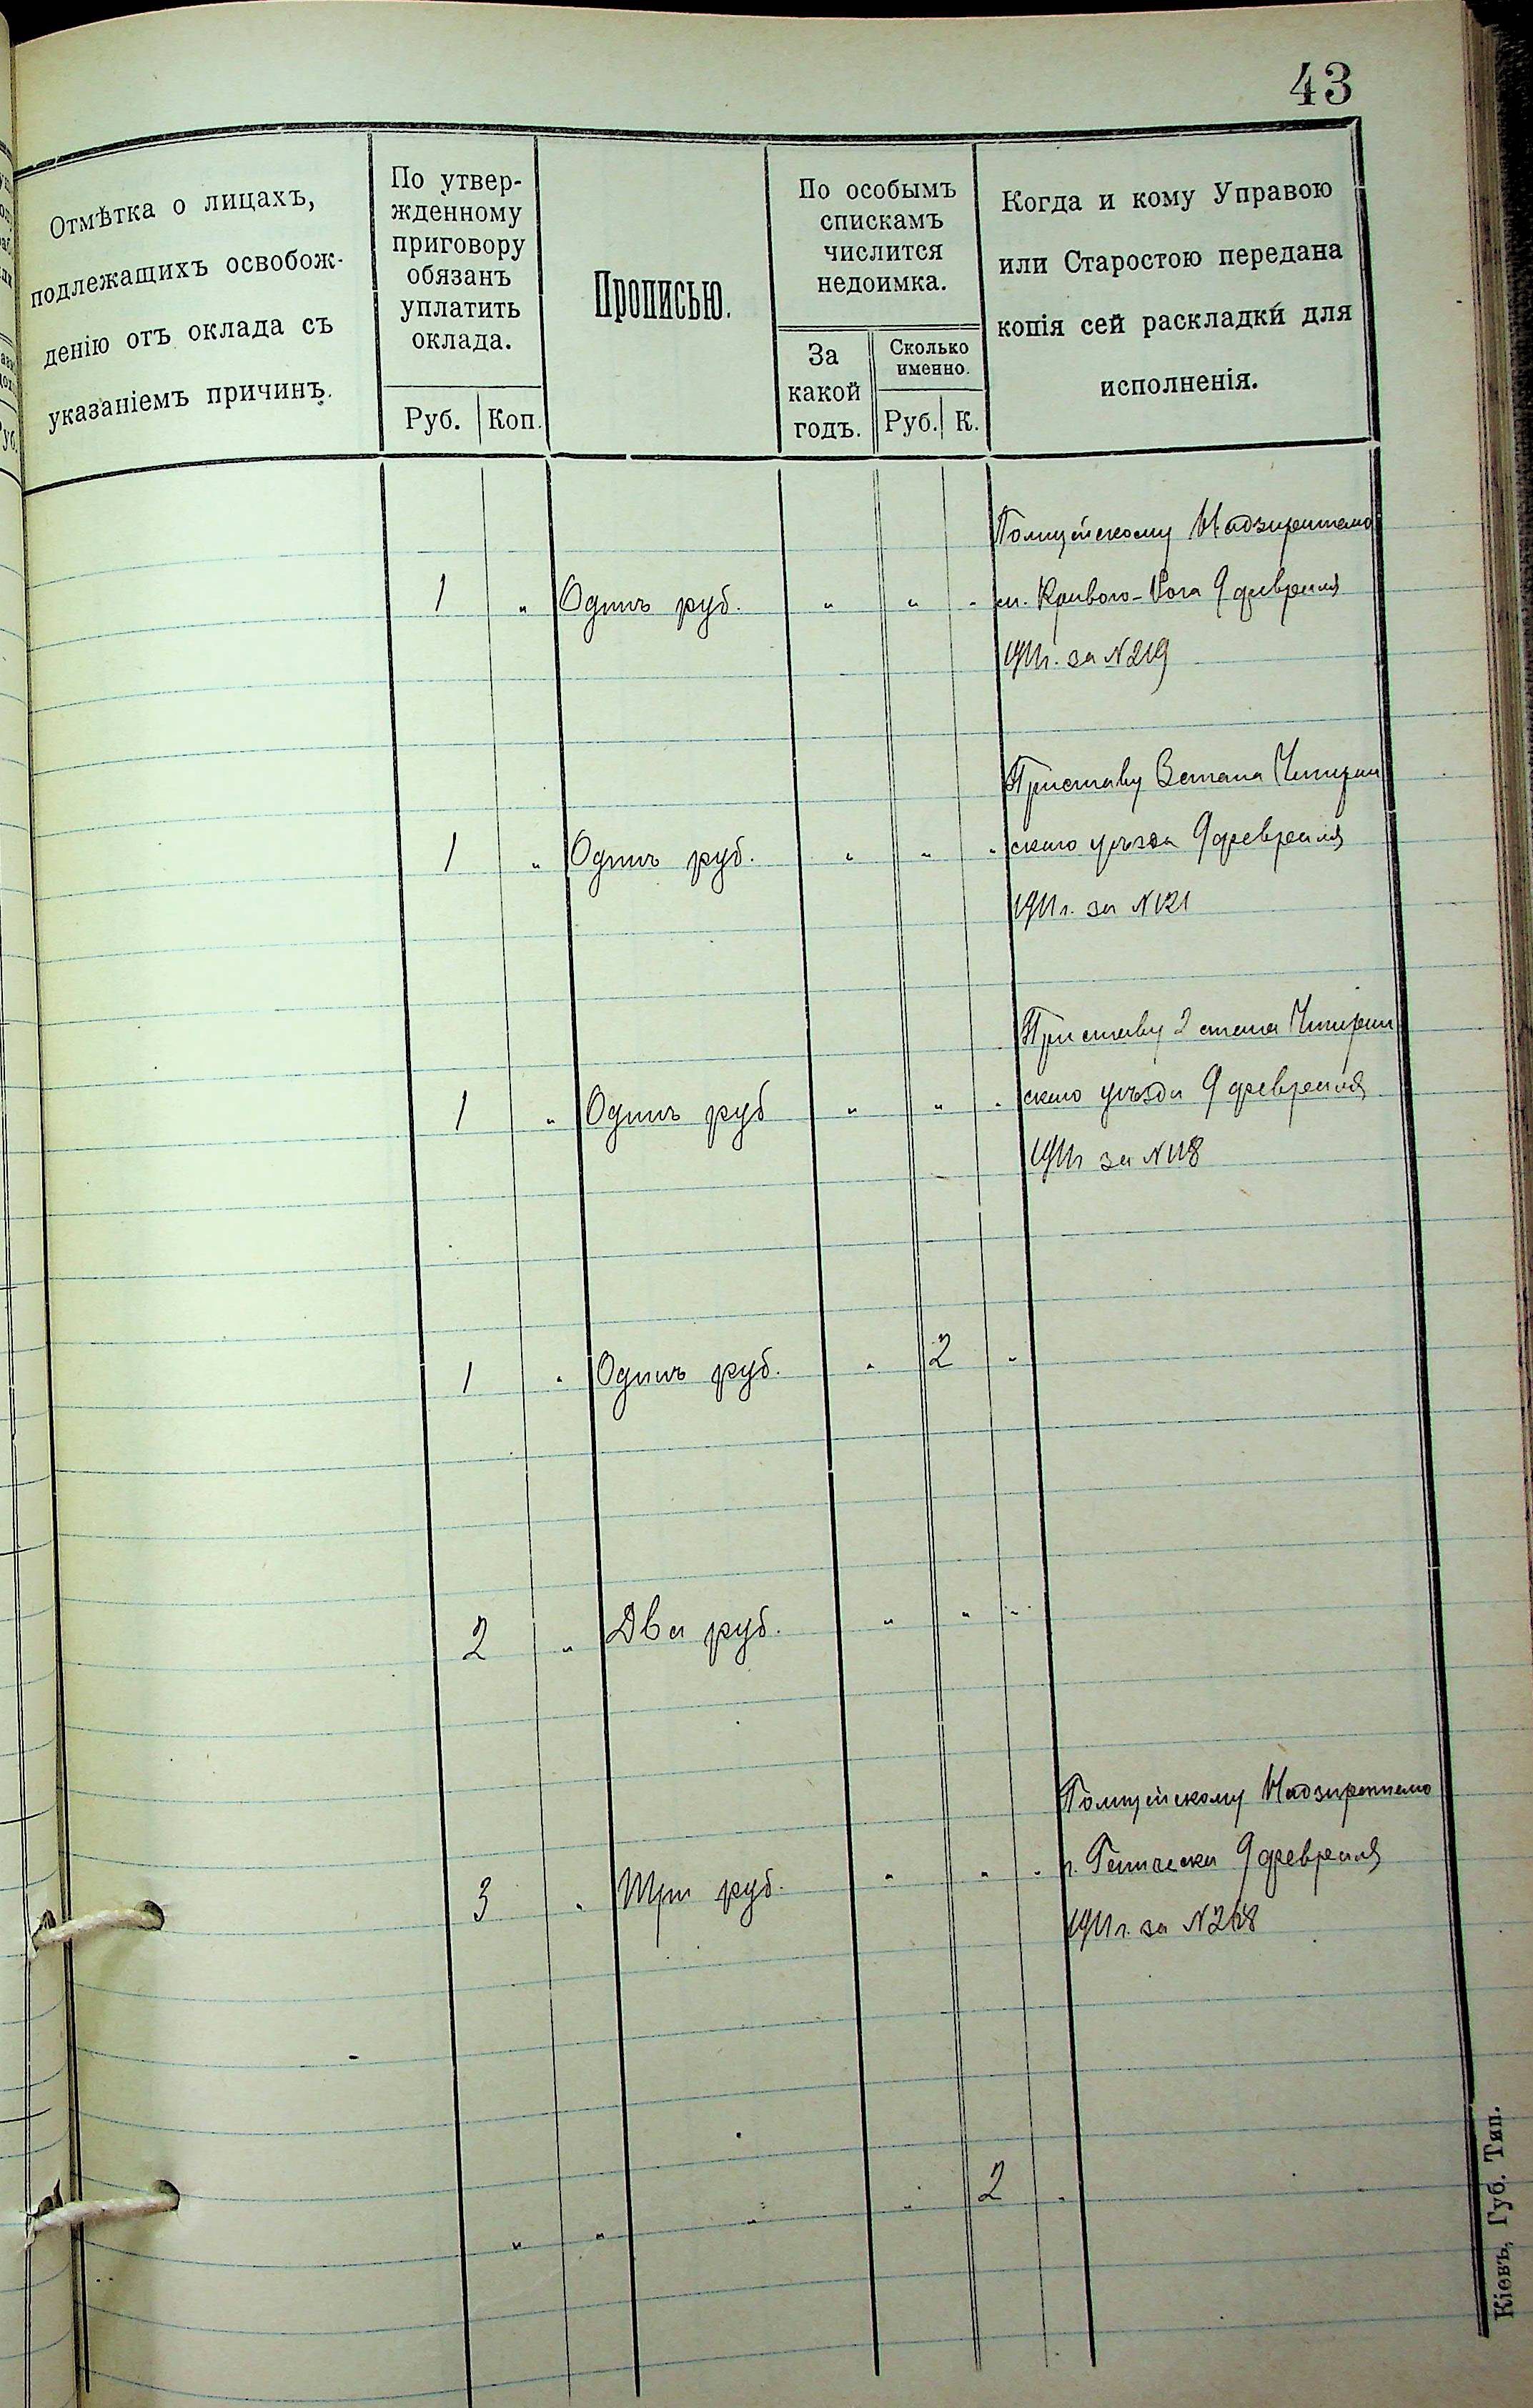 43
Отмѣтка о лицахъ,
подлежащихъ освобож-
денію отъ оклада съ
указаніемъ причинъ.
По утвер-
жденному
приговору
обязанъ
уплатить
оклада.
Руб. Коп.
Прописью.
По особымъ
спискамъ
числится
недоимка.
За
какой
годъ.
Сколько
именно.
Руб. К.
Когда и кому Управою
или Старостою передана
копія сей раскладки для
исполненія.
Полицейскому Надзирателю
1 " Одинъ руб. " " " м. Кривого-Рога 9 февраля
1911г. за N219
Приставу 3 стана Чигирин
1 " Одинъ руб. " " " скаго уѣзда 9 февраля
1911г. за N121
Приставу 2 стана Чигирин
1 " Одинъ руб " " " скаго уѣзда 9 февраля
1911г за N118
1 " Одинъ руб. " 2 "
2 " Два руб. " " "
Полицейскому Надзирателю
3 " Три руб. " " " г. Геническа 9 февраля
1911г. за
" " " " 2 "
Кіевъ, Губ. Тип.